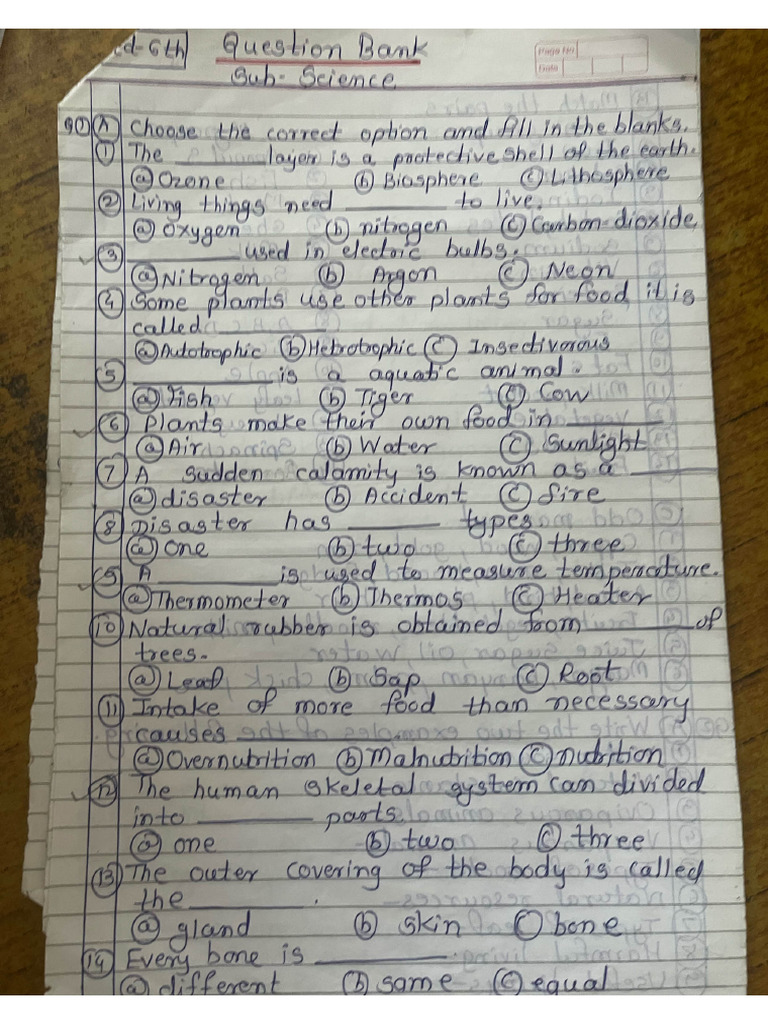 d-6th Question Bank
Page No
Date
Sub- Science
Q1) (A) Choose the correct option and fill in the blanks.
(1) The ________ layer is a protective shell of the earth.
(a) Ozone (b) Biosphere (c) Lithosphere
(2) Living things need ________ to live.
(a) Oxygen (b) nitrogen (c) Carbon-dioxide
(3) ________ used in electric bulbs.
(a) Nitrogen (b) Argon (c) Neon
(4) Some plants use other plants for food it is
called ________
(a) Autotrophic (b) Hetrotrophic (c) Insectivorous
(5) ________ is a aquatic animal.
(a) Fish (b) Tiger (c) Cow
(6) Plants make their own food in ________
(a) Air (b) Water (c) Sunlight
(7) A sudden calamity is known as a ________
(a) disaster (b) Accident (c) fire
(8) Disaster has ________ types
(a) one (b) two (c) three
(9) A ________ is used to measure temperature.
(a) Thermometer (b) Thermos (c) Heater
(10) Natural rubber is obtained from ________ of
trees.
(a) Leaf (b) Sap (c) Root
(11) Intake of more food than necessary
causes ________.
(a) Overnutrition (b) Malnutrition (c) nutrition
(12) The human skeletal system can divided
into ________ parts.
(a) one (b) two (c) three
(13) The outer covering of the body is called
the ________.
(a) gland (b) skin (c) bone
(14) Every bone is ________.
(a) different (b) same (c) equal